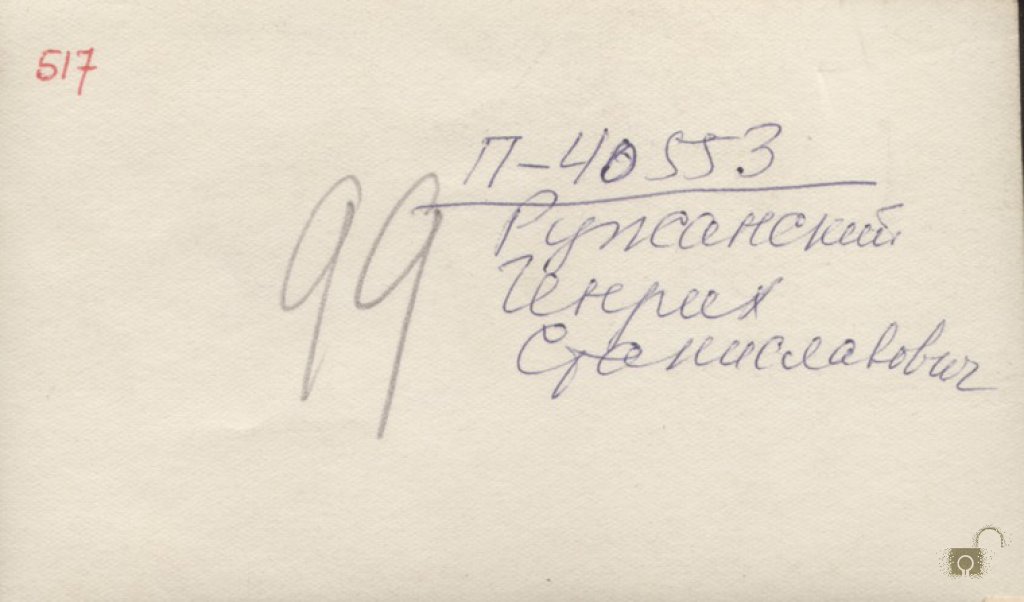 517
П-40553
99
Ружанский
Генрих
Станиславович